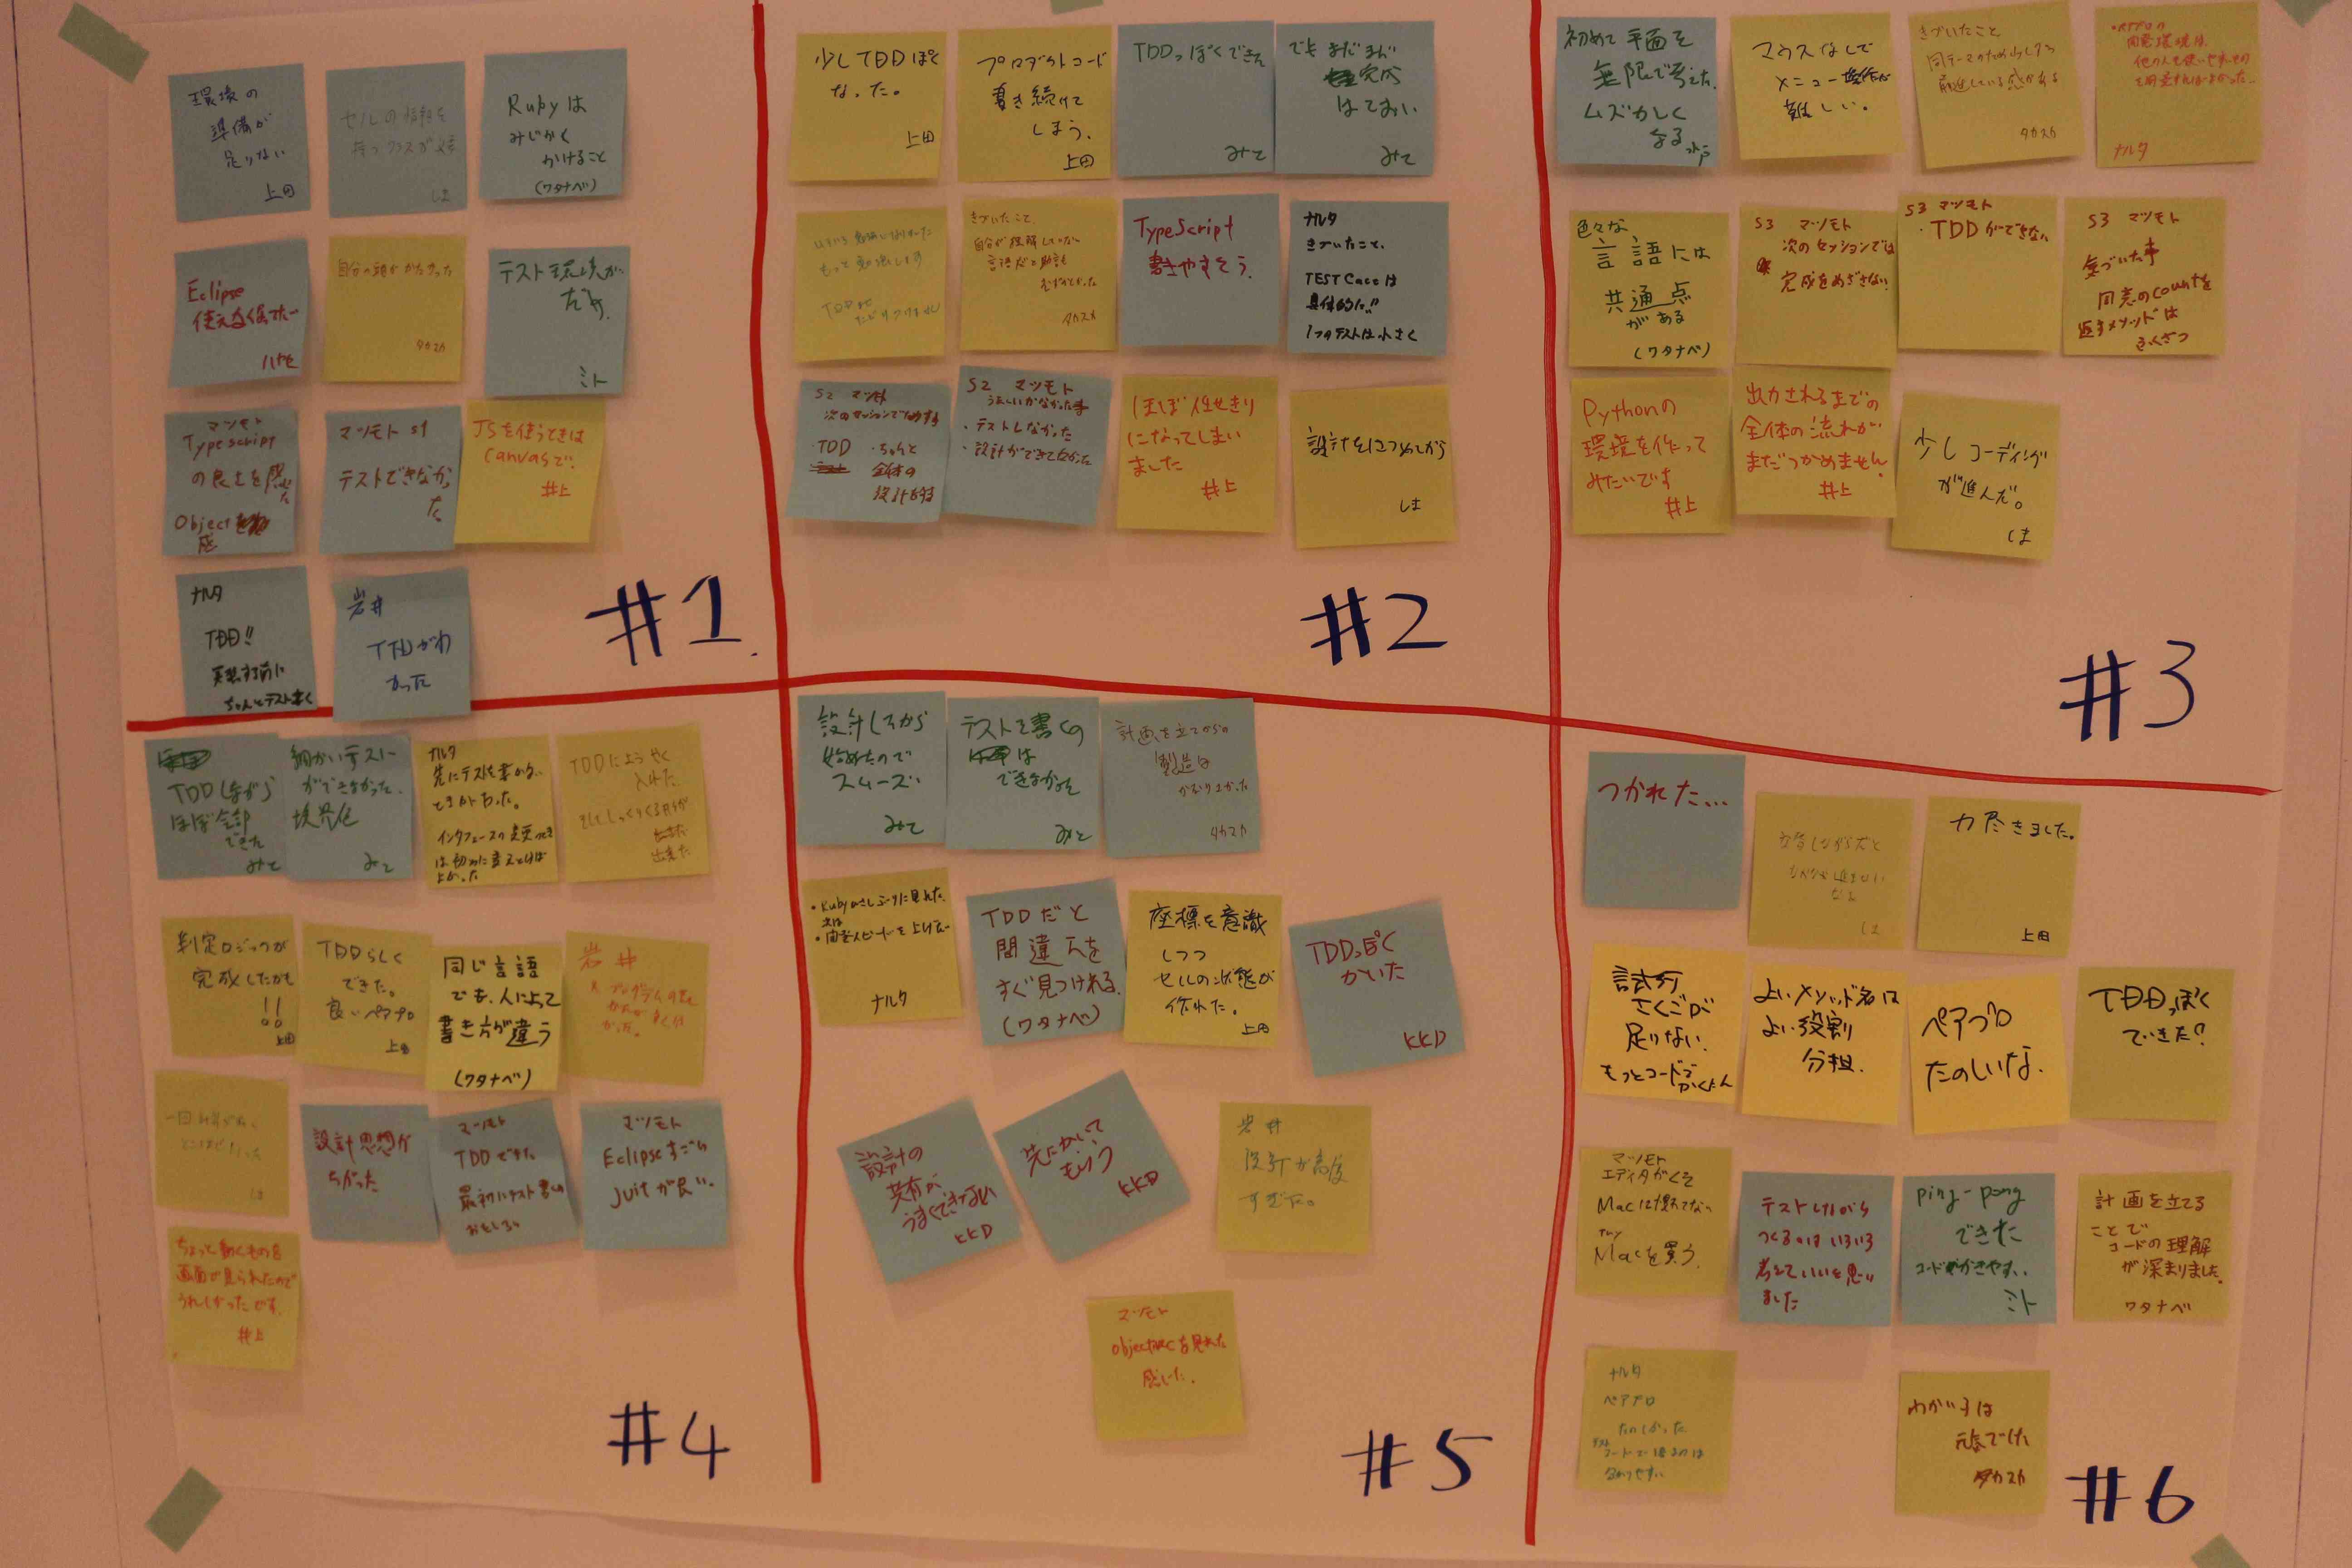 環境の
準備が
足りない
上田
セルの情報を
持つクラスが必要
しま
Rubyは
みじかく
かけること
(ワタナベ)
Eclipse
ハナセ
自分の頭がかたかった
タカスカ
テスト環境が
だめ.
ミト
マツモト
Typescript
の良さを感じ
た
Object
感
マツモト S1
テストできなかっ
た
JSを使うときは
Canvasで.
井上
ナルタ
TDD!!
実装する前に
ちゃんとテスト書く
岩井
TDDがわ
かった
#1
少しTDDぽく
なった。
上田
プロダクトコード
書き続けて
しまう.
上田
TDDっぽくできた
みと
でもまだまだ
完成
はてない
みと
もっと勉強します
きづいたこと
自分が理解していない
言語だと助言も
むずかしかった
タカスカ
TypeScript
書きやすそう.
ナルタ
きづいたこと、
TEST Caseは
具体的だ!!
1つのテストは小さく
S2 マツモト
次のセッションでためすもの
・TDD ・ちゃんと
全体の
設計をする
S2 マツモト
・テストしなかった
・設計ができてなかった
ほぼ任せきり
になってしまい
ました
井上
設計をにつめてから
しま
#2
初めて平面を
無限で考えた.
ムズかしく
なる
マウスなしで
メニュー操作が
難しい。
きづいたこと
同テーマのため少しずつ
前進している感がある
タカスカ
・ペアプロの
開発環境は、
他の人も使いやすいもの
を用意すればよかった.
ナルタ
色々な
言語には
共通点
がある
(ワタナベ)
S3 マツモト
次のセッションでは
完成をめざさない
S3 マツモト
・TDDができない
S3 マツモト
気づいた事
周意のcountを
返すメソッドは
ふくざつ
Pythonの
環境を作って
みたいです
井上
出力されるまでの
全体の流れが
まだつかめません.
井上
少しコーディング
が進んだ。
しま
#3
TDDしながら
ほぼ全部
できた
みと
細かいテスト
ができなかった.
境界値
みと
ナルタ
先にテストを書かない
ときがあった。
インタフェースの変更のとき
は初めに変えとけば
よかった
TDDにようやく
入れた.
出来た
判定ロジックが
完成したかも
!!
上田
TDDらしく
できた。
良いペアプロ
上田
同じ言語
でも、人によって
書き方が違う
(ワタナベ)
岩井
しま
設計思想が
ちがった
マツモト
TDDできた
最初にテスト書くの
おもしろい
マツモト
Eclipseすごい
Juitが良い.
ちょっと動くもの&
画面が見られたので
うれしかったです.
井上
#4
設計してから
始めたので
スムーズ.
みと
テストを書くの
は
できなかった
みと
計画を立てからの
製造は
かなりよかった
タカスカ
・Rubyひさしぶりに見れた.
ナルタ
TDDだと
間違えを
すぐ見つけれる.
(ワタナベ)
座標を意識
しつつ
セルの状態が
作れた。
上田
TDDっぽく
かいた
KKD
設計の
共有が
うまくできてない
KKD
先にかいて
もらう
KKD
岩井
設計が高度
すぎた。
マツモト
objectivecを見れた
感じた.
#5
つかれた...
しま
力尽きました。
上田
試行
さくごが
足りない.
もっとコードを
かくもん
よいメソッド名は
よい役割
分担.
ペアプロ
たのしいな.
TDDっぽく
できた?
マツモト
エディタがくそ
Macに慣れてない
try
Macを買う.
テストしながら
つくるのはいろいろ
考えていいと思い
ました
ping-pong
できた
コードがかきやすい.
ミト
計画を立てる
ことで
コードの理解
が深まりました.
ワタナベ
ナルタ
ペアプロ
たのしかった
わが子は
元気でした
タカスカ
#6